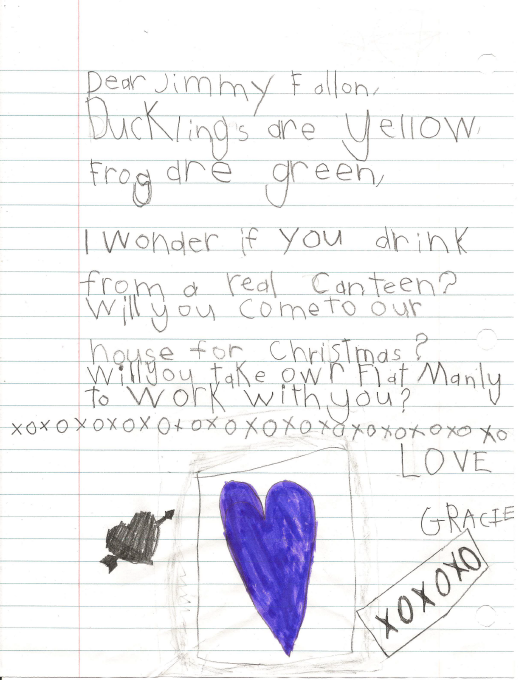 Dear Jimmy Fallon,
Ducklings are yellow.
Frog are green,
I wonder if you drink
from a real Canteen?
Will you come to our
house for Christmas?
Will you take owr Flat Manly
to work with you?
XOXOXOXOXOXOXOXOXOXOXOXOXOXOXO
LOVE
GRACIE
XOXOXO